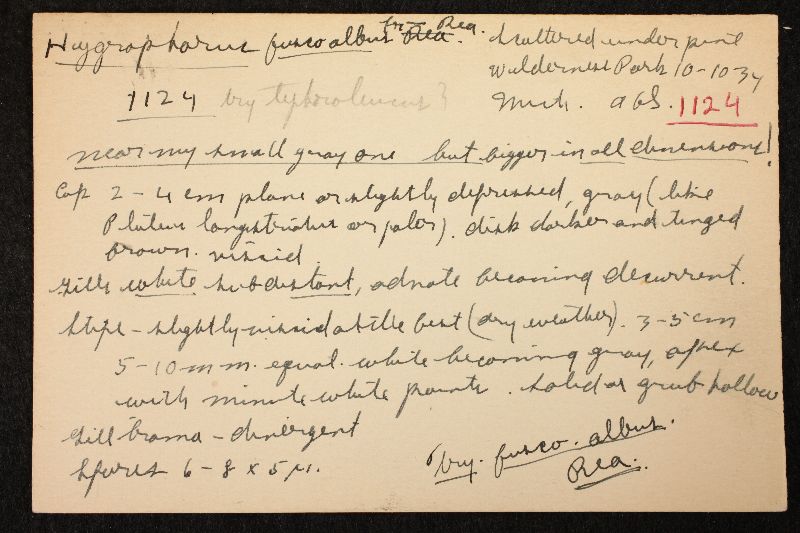 Hygrophorus fusco albus Fr – Rea.
scattered under pine
Wilderness Park 10-10-34
1124 try
Mich. a & S. 1124
near my small gray one but bigger in all dimensions!
Cap 2-4 cm plane or slightly depressed, gray (like
Pluteus longistriatus or paler). disk darker and tinged
brown. viscid
Gills white subdistant, adnate becoming decurrent.
Stipe - slightly viscid at the best (dry weather). 3-5 cm
5-10 mm. equal. white becoming gray, apex
with minute white points. solid or grub hollow
Gill trama - divergent
Spores 6-8 x 5 µ.
try. fusco. albus.
Rea.